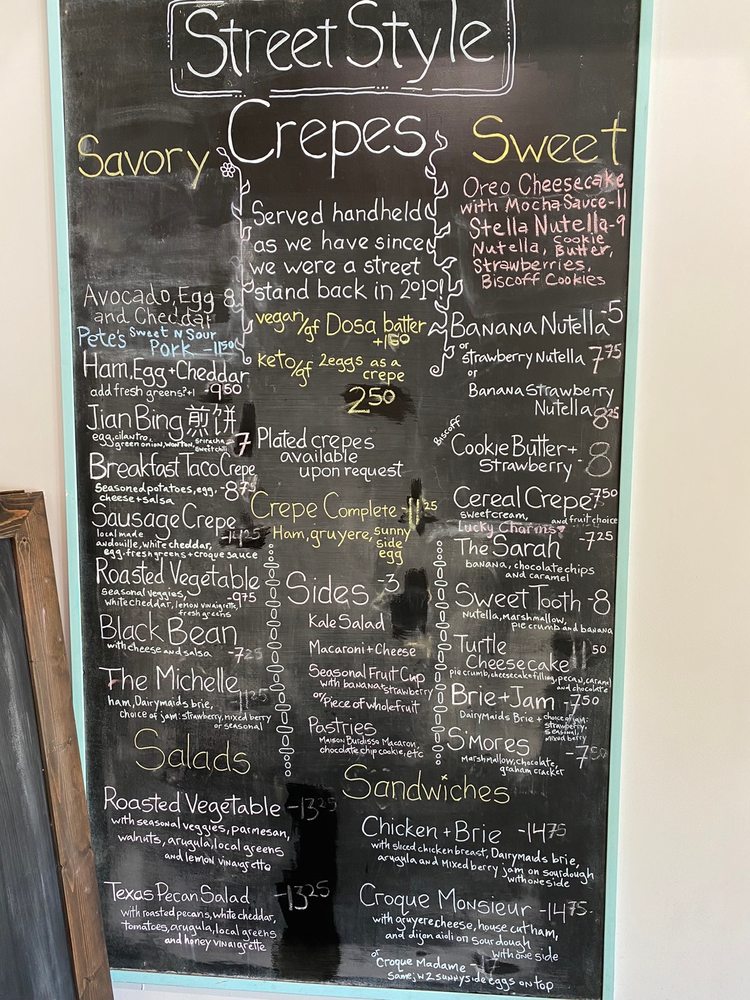 Street Style
Crepes
Savory
Avocado, Egg 8
and Cheddar
Pete's Sweet N Sour
Pork -11.50
Ham, Egg + Cheddar
add fresh greens?+1 -9.50
Jian Bing 煎饼
egg, cilantro,
green onion, wonton, sriracha
sweet chili -7
Breakfast Taco Crepe
seasoned potatoes, egg, -8.75
cheese + salsa
Sausage Crepe
local made -14.25
andouille, white cheddar,
egg, fresh greens + croque sauce
Roasted Vegetable
seasonal veggies, -9.75
white cheddar, lemon vinaigrette,
fresh greens
Black Bean
with cheese and salsa -7.25
The Michelle
ham, Dairymaids brie, -11.25
choice of jam: strawberry, mixed berry
or seasonal
Served handheld
as we have since
we were a street
stand back in 2010!
vegan/gf Dosa batter
+1.50
keto/gf 2 eggs as a
crepe
2.50
Plated crepes
available
upon request
Crepe Complete -11.25
Ham, gruyere, sunny
side
egg
Sides -3
Kale Salad
Macaroni + Cheese
Seasonal Fruit Cup
with banana + strawberry
or/ Piece of whole fruit
Pastries
Maison Burdisso Macaron,
chocolate chip cookie, etc
Sweet
Oreo Cheesecake
with Mocha Sauce -11
Stella Nutella -9
Nutella, Cookie
Butter,
Strawberries,
Biscoff Cookies
Banana Nutella -5
or
strawberry Nutella 7.75
or
Banana Strawberry
Nutella 8.25
Biscoff
Cookie Butter +
Strawberry - 8
Cereal Crepe -7.50
sweet cream, and fruit choice
Lucky Charms?
The Sarah -7.25
banana, chocolate chips
and caramel
Sweet Tooth -8
Nutella, marshmallow,
pie crumb and banana
Turtle
Cheesecake 11.50
pie crumb, cheesecake filling, pecan, caramel
and chocolate
Brie + Jam -7.50
Dairymaids Brie + choice of jam:
strawberry,
seasonal,
mixed berry
S'mores -7.50
marshmallow, chocolate,
graham cracker
Salads
Roasted Vegetable -13.25
with seasonal veggies, parmesan,
walnuts, arugula, local greens
and lemon vinaigrette
Texas Pecan Salad -13.25
with roasted pecans, white cheddar,
tomatoes, arugula, local greens
and honey vinaigrette
Sandwiches
Chicken + Brie -14.75
with sliced chicken breast, Dairymaids brie,
arugula and Mixed berry jam on sourdough
with one side
Croque Monsieur -14.75
with gruyere cheese, house cut ham,
and dijon aioli on sourdough
with one side
or
Croque Madame
same, w 2 sunny side eggs on top